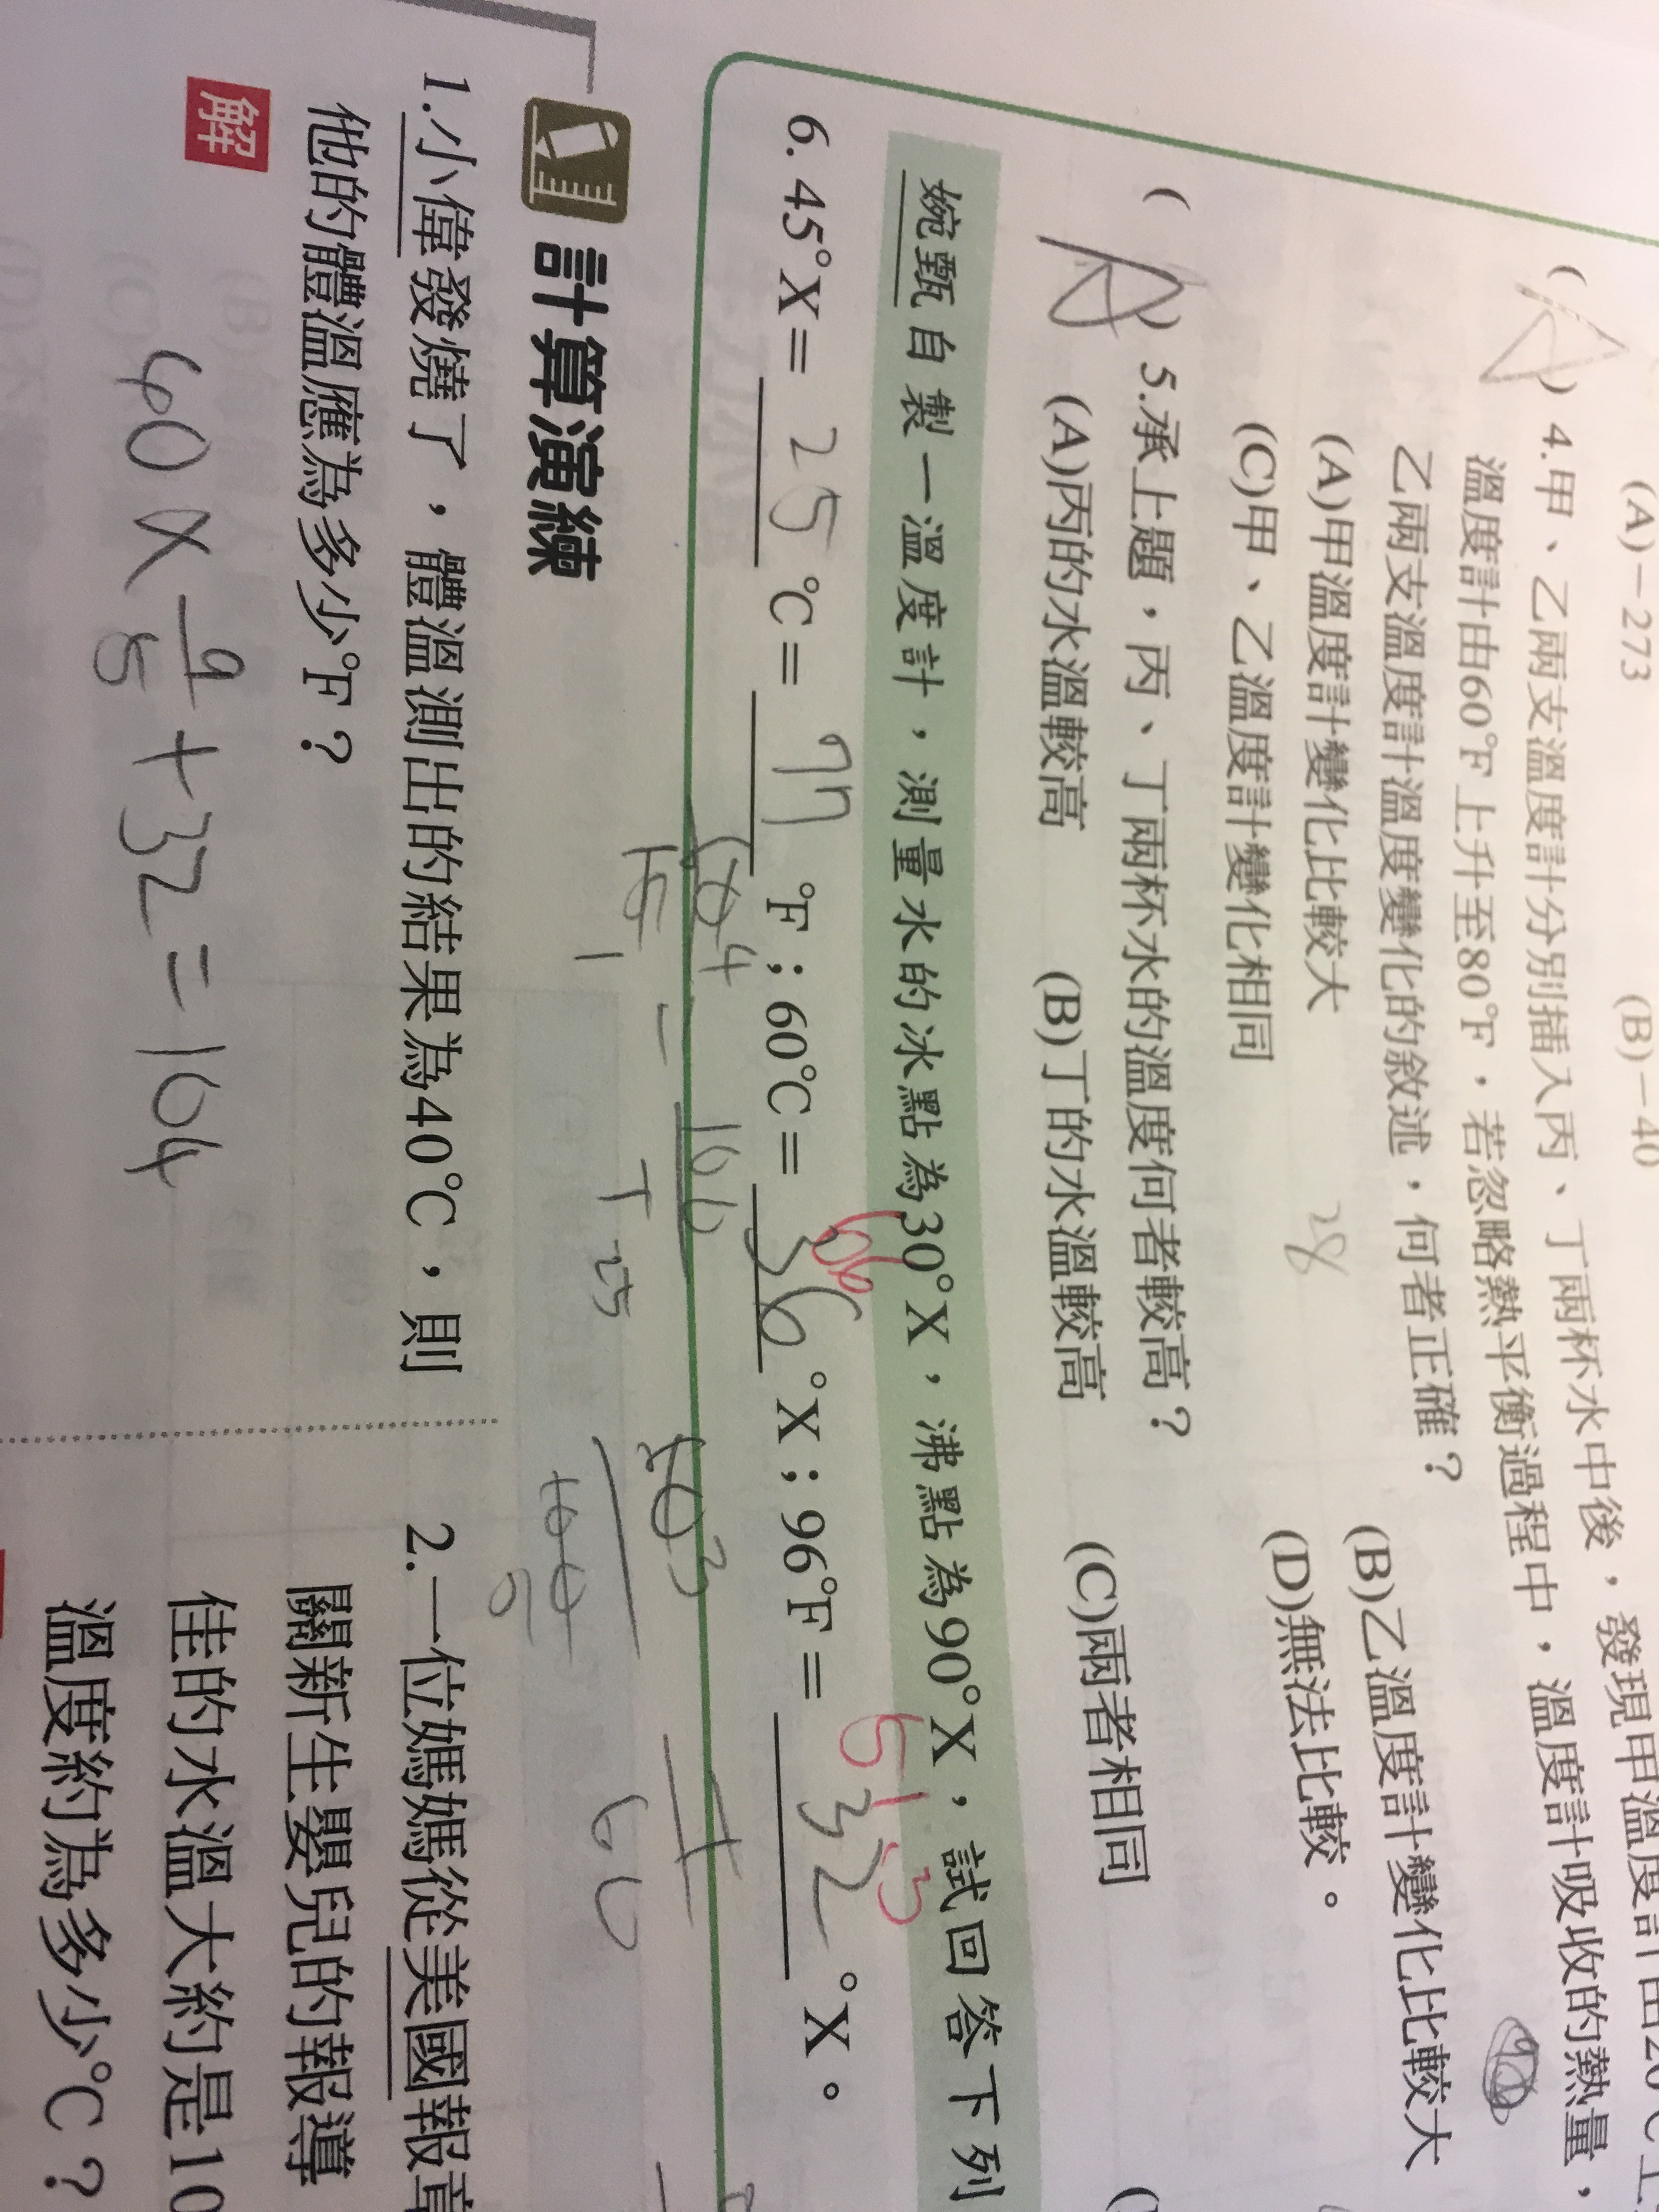 (A)－273
(B)－40
4.甲、乙兩支溫度計分別插入丙、丁兩杯水中後，發現甲溫度計由20℃上
溫度計由60℉上升至80℉，若忽略熱平衡過程中，溫度計吸收的熱量，
乙兩支溫度計溫度變化的敘述，何者正確？
(A)甲溫度計變化比較大
(B)乙溫度計變化比較大
(C)甲、乙溫度計變化相同
(D)無法比較。
28
( A ) 5.承上題，丙、丁兩杯水的溫度何者較高？
(A)丙的水溫較高
(B)丁的水溫較高
(C)兩者相同
婉甄自製一溫度計，測量水的冰點為30°X，沸點為90°X，試回答下列
6. 45°X＝ 25 ℃＝ 77 ℉；60℃＝ 36 °X；96℉＝ 32 °X。
66
51.3
計算演練
1.小偉發燒了，體溫測出的結果為40℃，則
他的體溫應為多少℉？
解
40 × 9/5 + 32 = 104
2.一位媽媽從美國報章
關新生嬰兒的報導
佳的水溫大約是10
溫度約為多少℃？